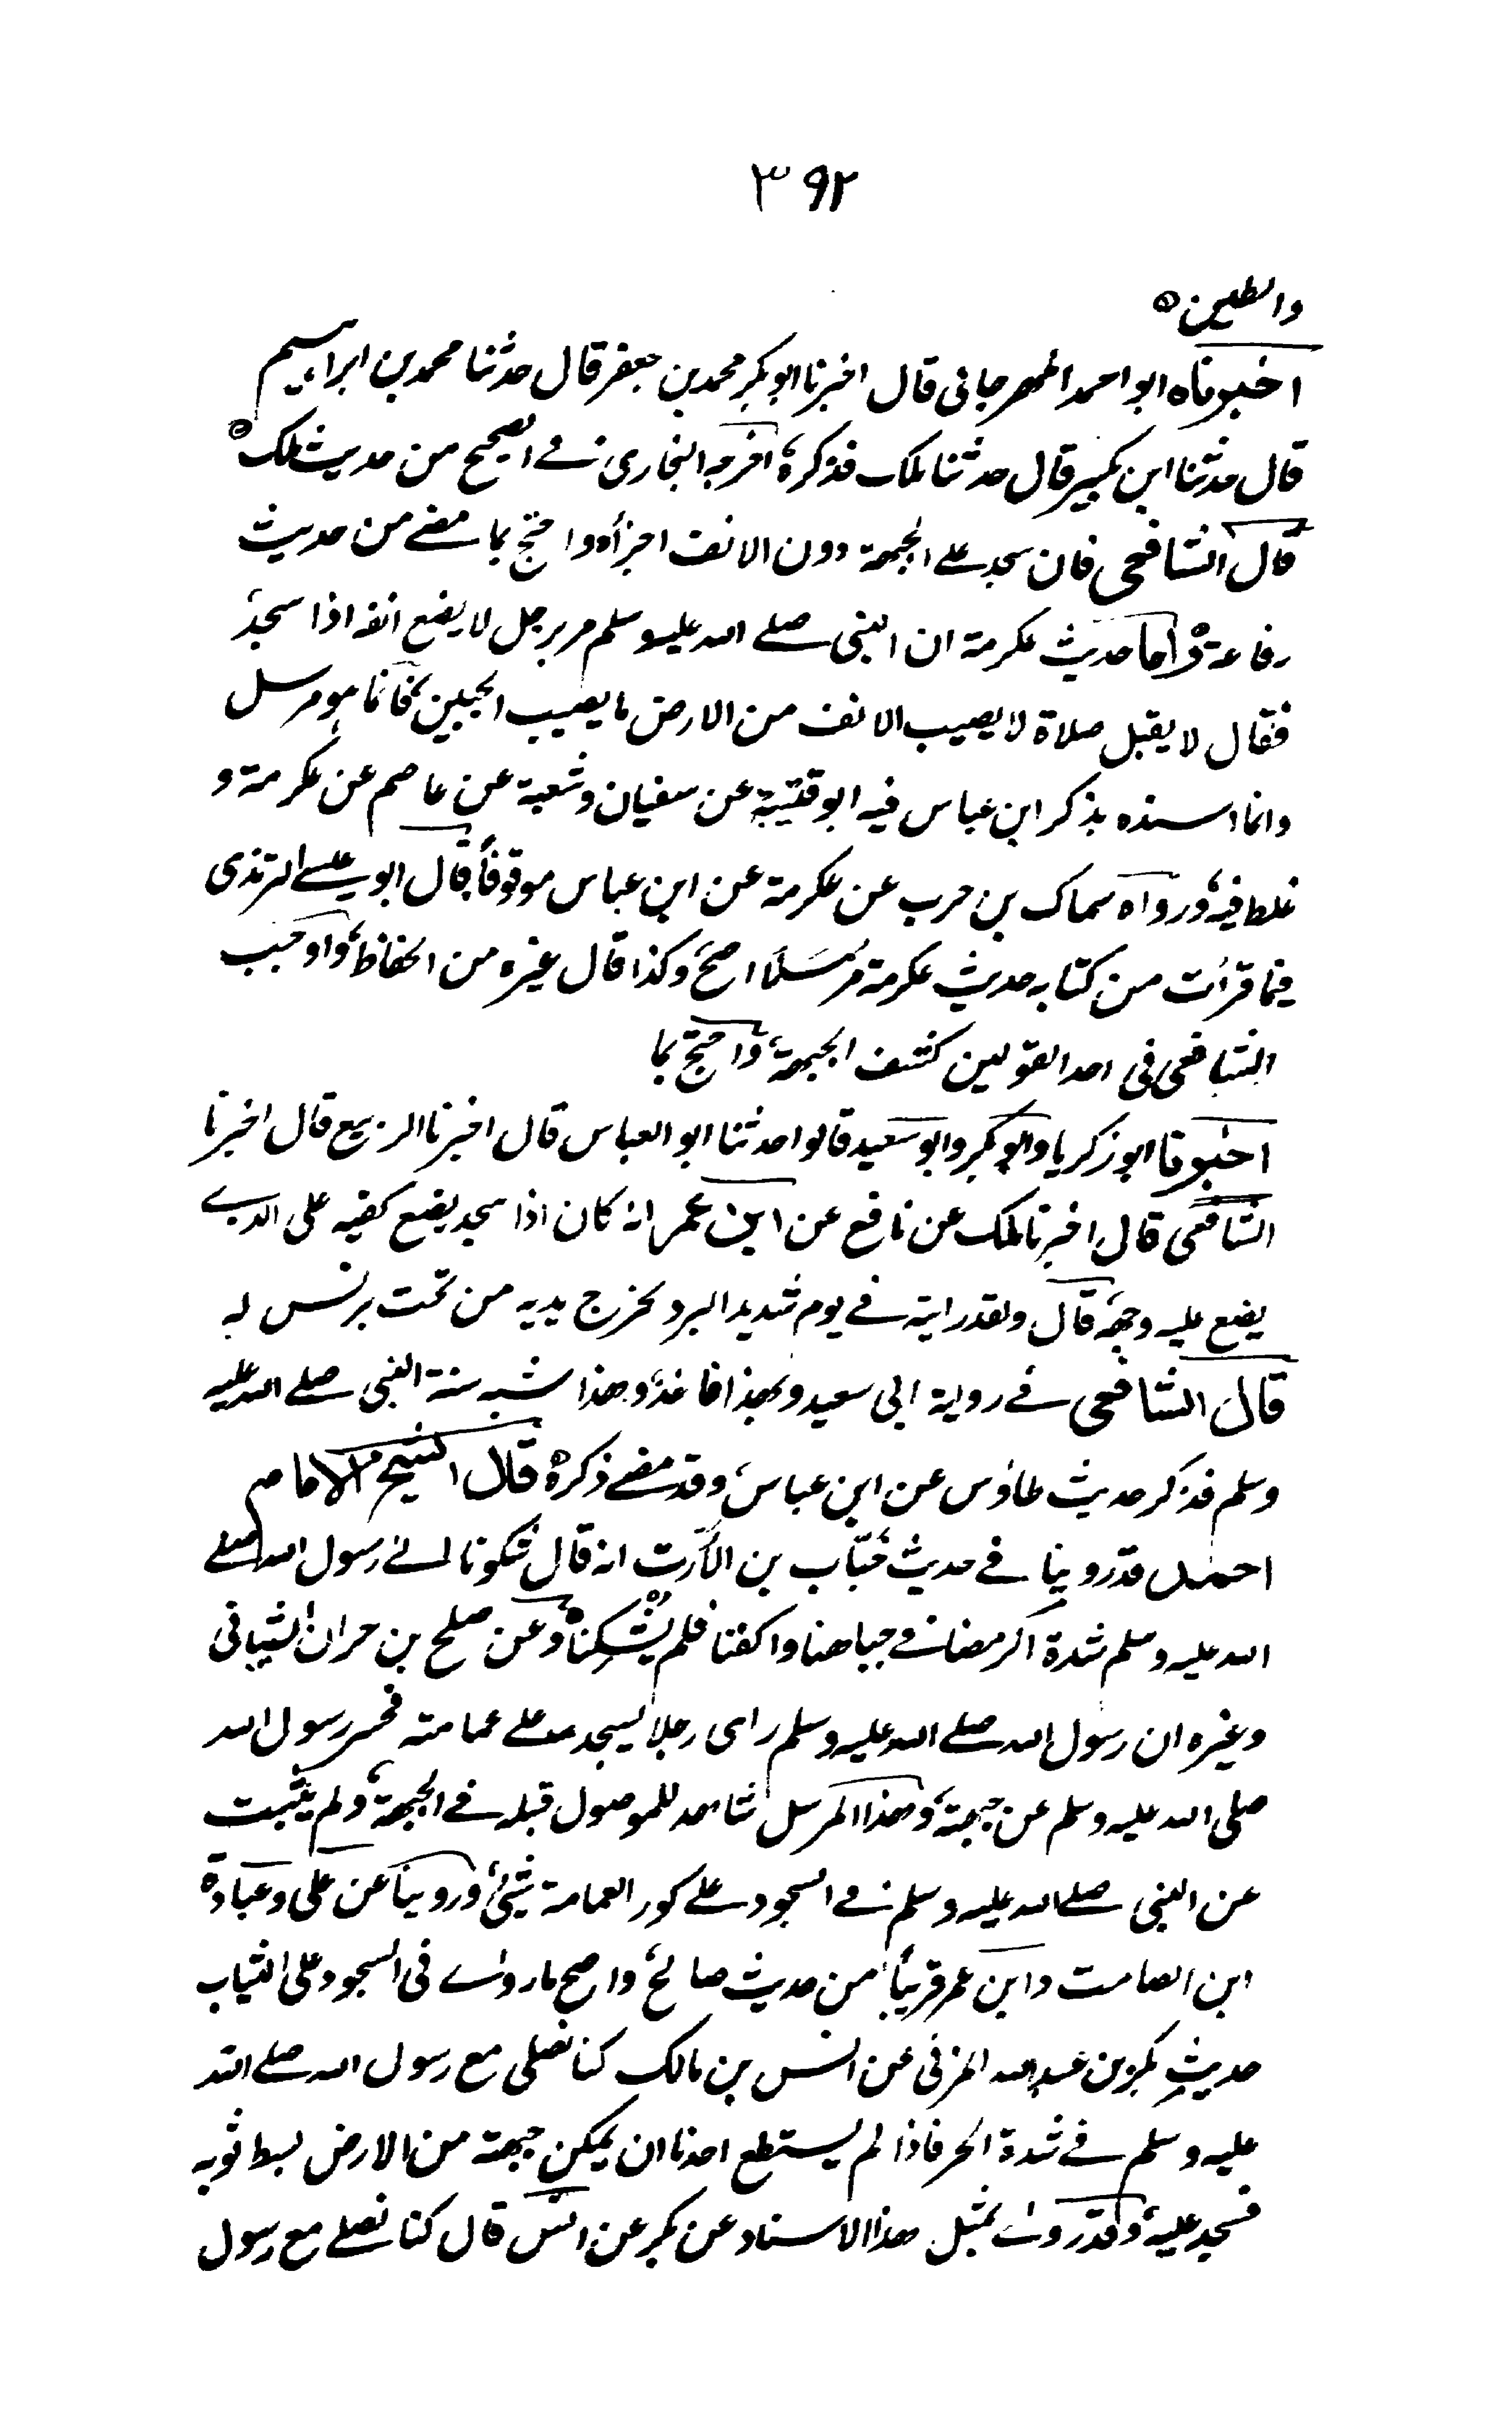 ٣٩٢
والطين ه
اخبرناه ابو احمد المهرجانى قال اخبرنا ابو بكر محمد بن جعفر قال حدثنا محمد بن ابراهيم
قال حدثنا ابن بكير قال حدثنا ملك فذكره، اخرجه البخارى فے الصحيح من حديث ملك ه
قال الشافعى فان سجد علے الجبهة دون الانف اجزأه واحتج بما مضے من حديث
رفاعة، واما حديث عكرمة ان النبى صلے الله عليه وسلم مر برجل لا يضع انفه اذا سجد،
فقال لا يقبل صلاة لا يصيب الانف من الارض ما يصيب الجبين، فانما هو مرسل
وانما اسنده بذكر ابن عباس فيه ابو قتيبة عن سفيان وشعبة عن عاصم عن عكرمة و
غلط فيه، ورواه سماك بن حرب عن عكرمة عن ابن عباس موقوفاً، قال ابو عيسے الترمذى
فيما قرأت من كتابه حديث عكرمة مرسلاً اصح، وكذا قال غيره من الحفاظ، واوجب
الشافعى فى احد القولين كشف الجبهة، واحتج بما
اخبرنا ابو زكريا وابو بكر وابو سعيد قالوا حدثنا ابو العباس قال اخبرنا الربيع قال اخبرنا
الشافعى قال اخبرنا ملك عن نافع عن ابن عمر انه كان اذا سجد يضع كفيه على الذے
يضع عليه وجهه، قال ولقد رايته فے يوم شديد البرد يخرج يديه من تحت برنس له
قال الشافعى فے رواية ابى سعيد وبهذا ناخذ، وهذا شبه سنة النبى صلے الله عليه
وسلم فذكر حديث طاؤس عن ابن عباس، وقد مضے ذكره، قال الشيخ الامام
احمد قد روينا فے حديث خبّاب بن الأرت انه قال شكونا الے رسول الله صلے
الله عليه وسلم شدة الرمضاء فے جباهنا واكفنا فلم يُشْكِنا، وعن صلح بن حران الشيبانى
وغيره ان رسول الله صلے الله عليه وسلم راى رجلا يسجد علے عمامته فحسر رسول الله
صلى الله عليه وسلم عن جبهته، وهذا المرسل شاهد للموصول قبله فے الجبهة، ولم يثبت
عن النبى صلے الله عليه وسلم فے السجود علے كور العمامة شئ، وروينا عن على وعبادة
ابن الصامت وابن عمر قريباً من حديث صالح، واصح ما روے فى السجود على الثياب
حديث بكر بن عبد الله المزنى عن انس بن مالك كنا نصلى مع رسول الله صلے الله
عليه وسلم فے شدة الحر فاذا لم يستطع احدنا ان يمكن جبهته من الارض بسط ثوبه
فسجد عليه، وقد روے بمثل هذا الاسناد عن بكر عن انس قال كنا نصلے مع رسول